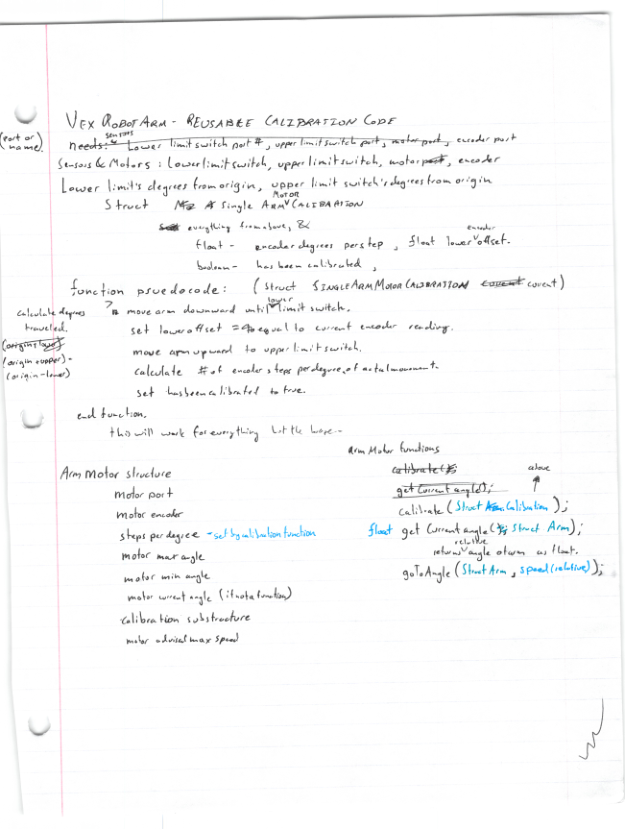 VEX ROBOT ARM - REUSABLE CALIBRATION CODE
(port or name)
sensors
needs: Lower limit switch port #, upper limit switch port, motor port, encoder port
Sensors & Motors : Lower limit switch, upper limit switch, motor port, encoder
Lower limit's degrees from origin, upper limit switch's degrees from origin
Struct A Single ARM MOTOR CALIBRATION
everything from above, &
float - encoder degrees per step, float lower encoder offset.
boolean - has been calibrated,
function psuedocode: (Struct SINGLE ARM MOTOR CALIBRATION curent)
calculate degrees traveled.
(origin+upper) -
(origin-lower)
? move arm downward until lower limit switch.
set lower offset = to equal to current encoder reading.
move arm upward to upper limit switch.
calculate # of encoder steps per degree, of actual movement.
set has been calibrated to true.
end function.
this will work for everything but the
Arm Motor functions
Arm Motor structure
motor port
motor encoder
steps per degree - set by calibration function
motor max angle
motor min angle
motor current angle (if not a function)
calibration substructure
motor advised max speed
calibrate();
above
get Current angle();
calibrate (Struct Calibration);
float get Current angle (Struct Arm);
returns relative angle of arm as float.
goToAngle (Struct Arm, speed (relative));